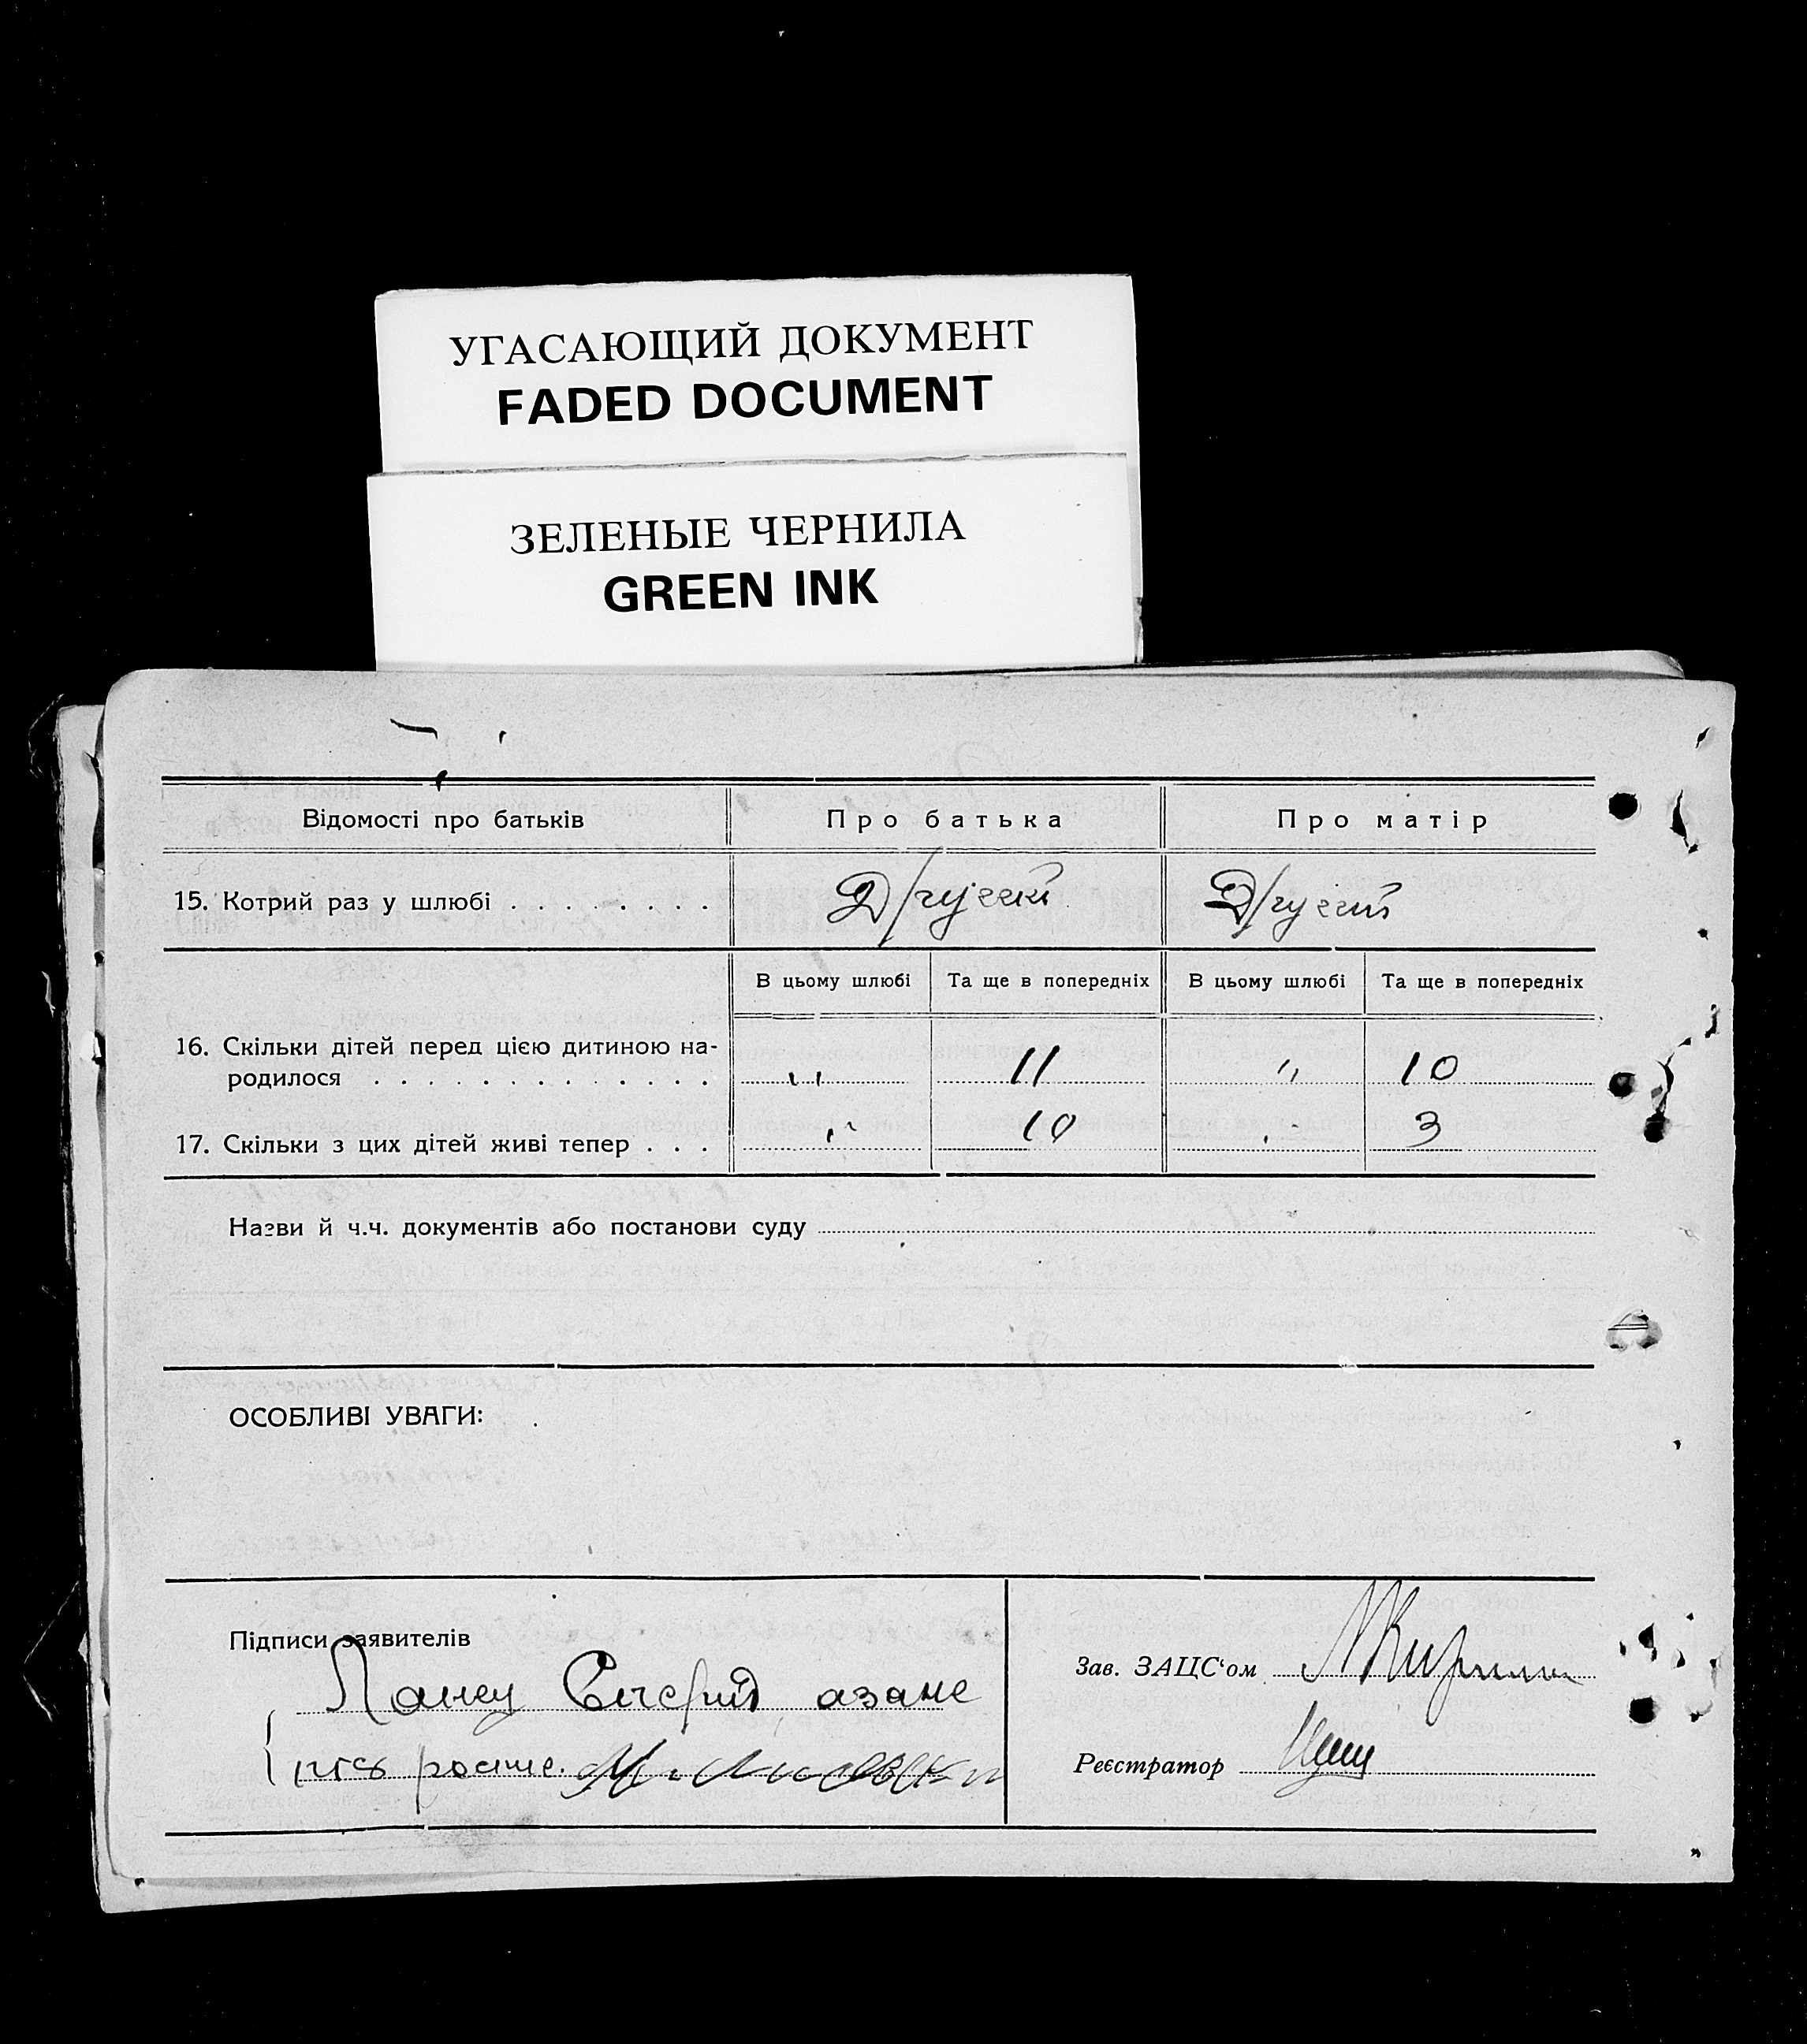 УГАСАЮЩИЙ ДОКУМЕНТ
FADED DOCUMENT
ЗЕЛЕНЫЕ ЧЕРНИЛА
GREEN INK
Відомості про батьків Про батька Про матір
15. Котрий раз у шлюбі . . . . . . . .
В цьому шлюбі Та ще в попередніх В цьому шлюбі Та ще в попередніх
16. Скільки дітей перед цією дитиною на-
родилося . . . . . . . . . . . . . „ 11 „ 10
17. Скільки з цих дітей живі тепер . . . „ 10 „ 3
Назви й ч.ч. документів або постанови суду
ОСОБЛИВІ УВАГИ:
Підписи заявителів
Зав. ЗАЦС'ом
Реєстратор